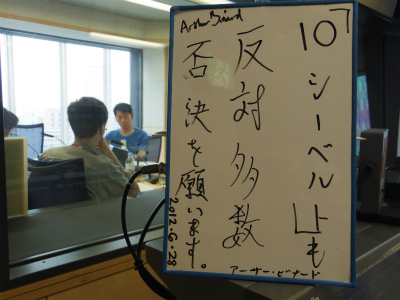 「10シーベル」トも
反対多数
否決を願います。
Arthur Binard
2012.6.28
アーサー・ビナード